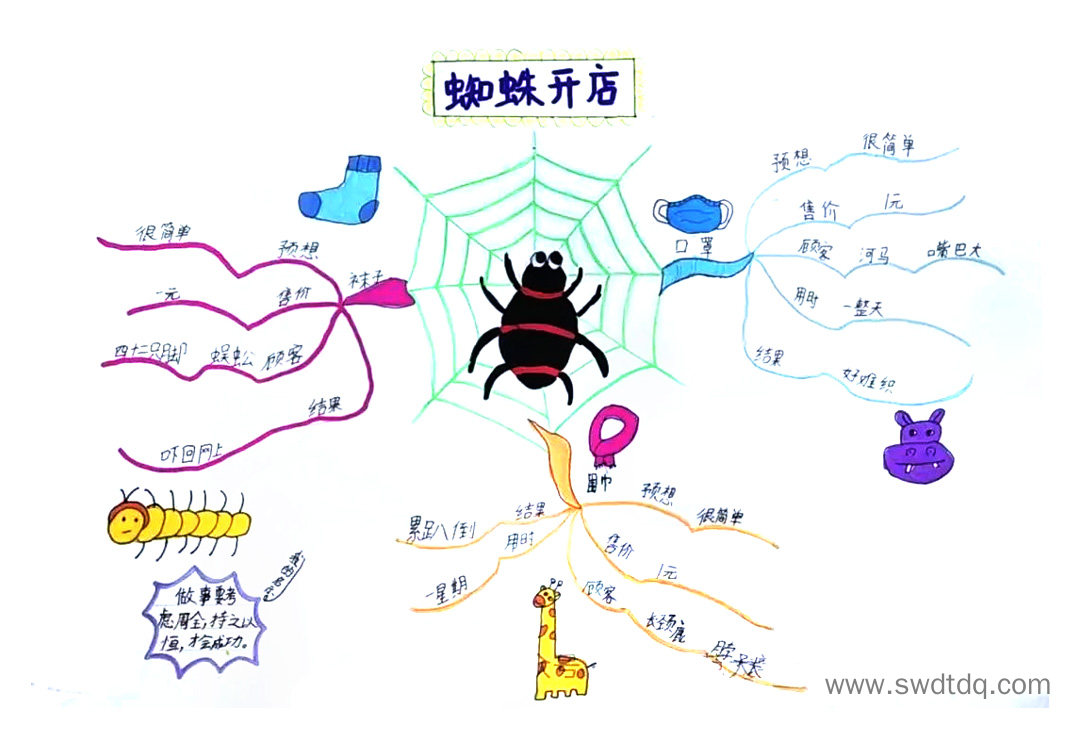 蜘蛛开店
口罩
预想 很简单
售价 1元
顾客 河马 嘴巴大
用时 一整天
结果 好难织
围巾
预想 很简单
售价 1元
顾客 长颈鹿 脖子长
用时 一星期
结果 累趴八倒
袜子
预想 很简单
售价 一元
顾客 蜈蚣 四十二只脚
结果 吓回网上
做事要考
虑周全,持之以
恒,才会成功。
www.swdtdq.com